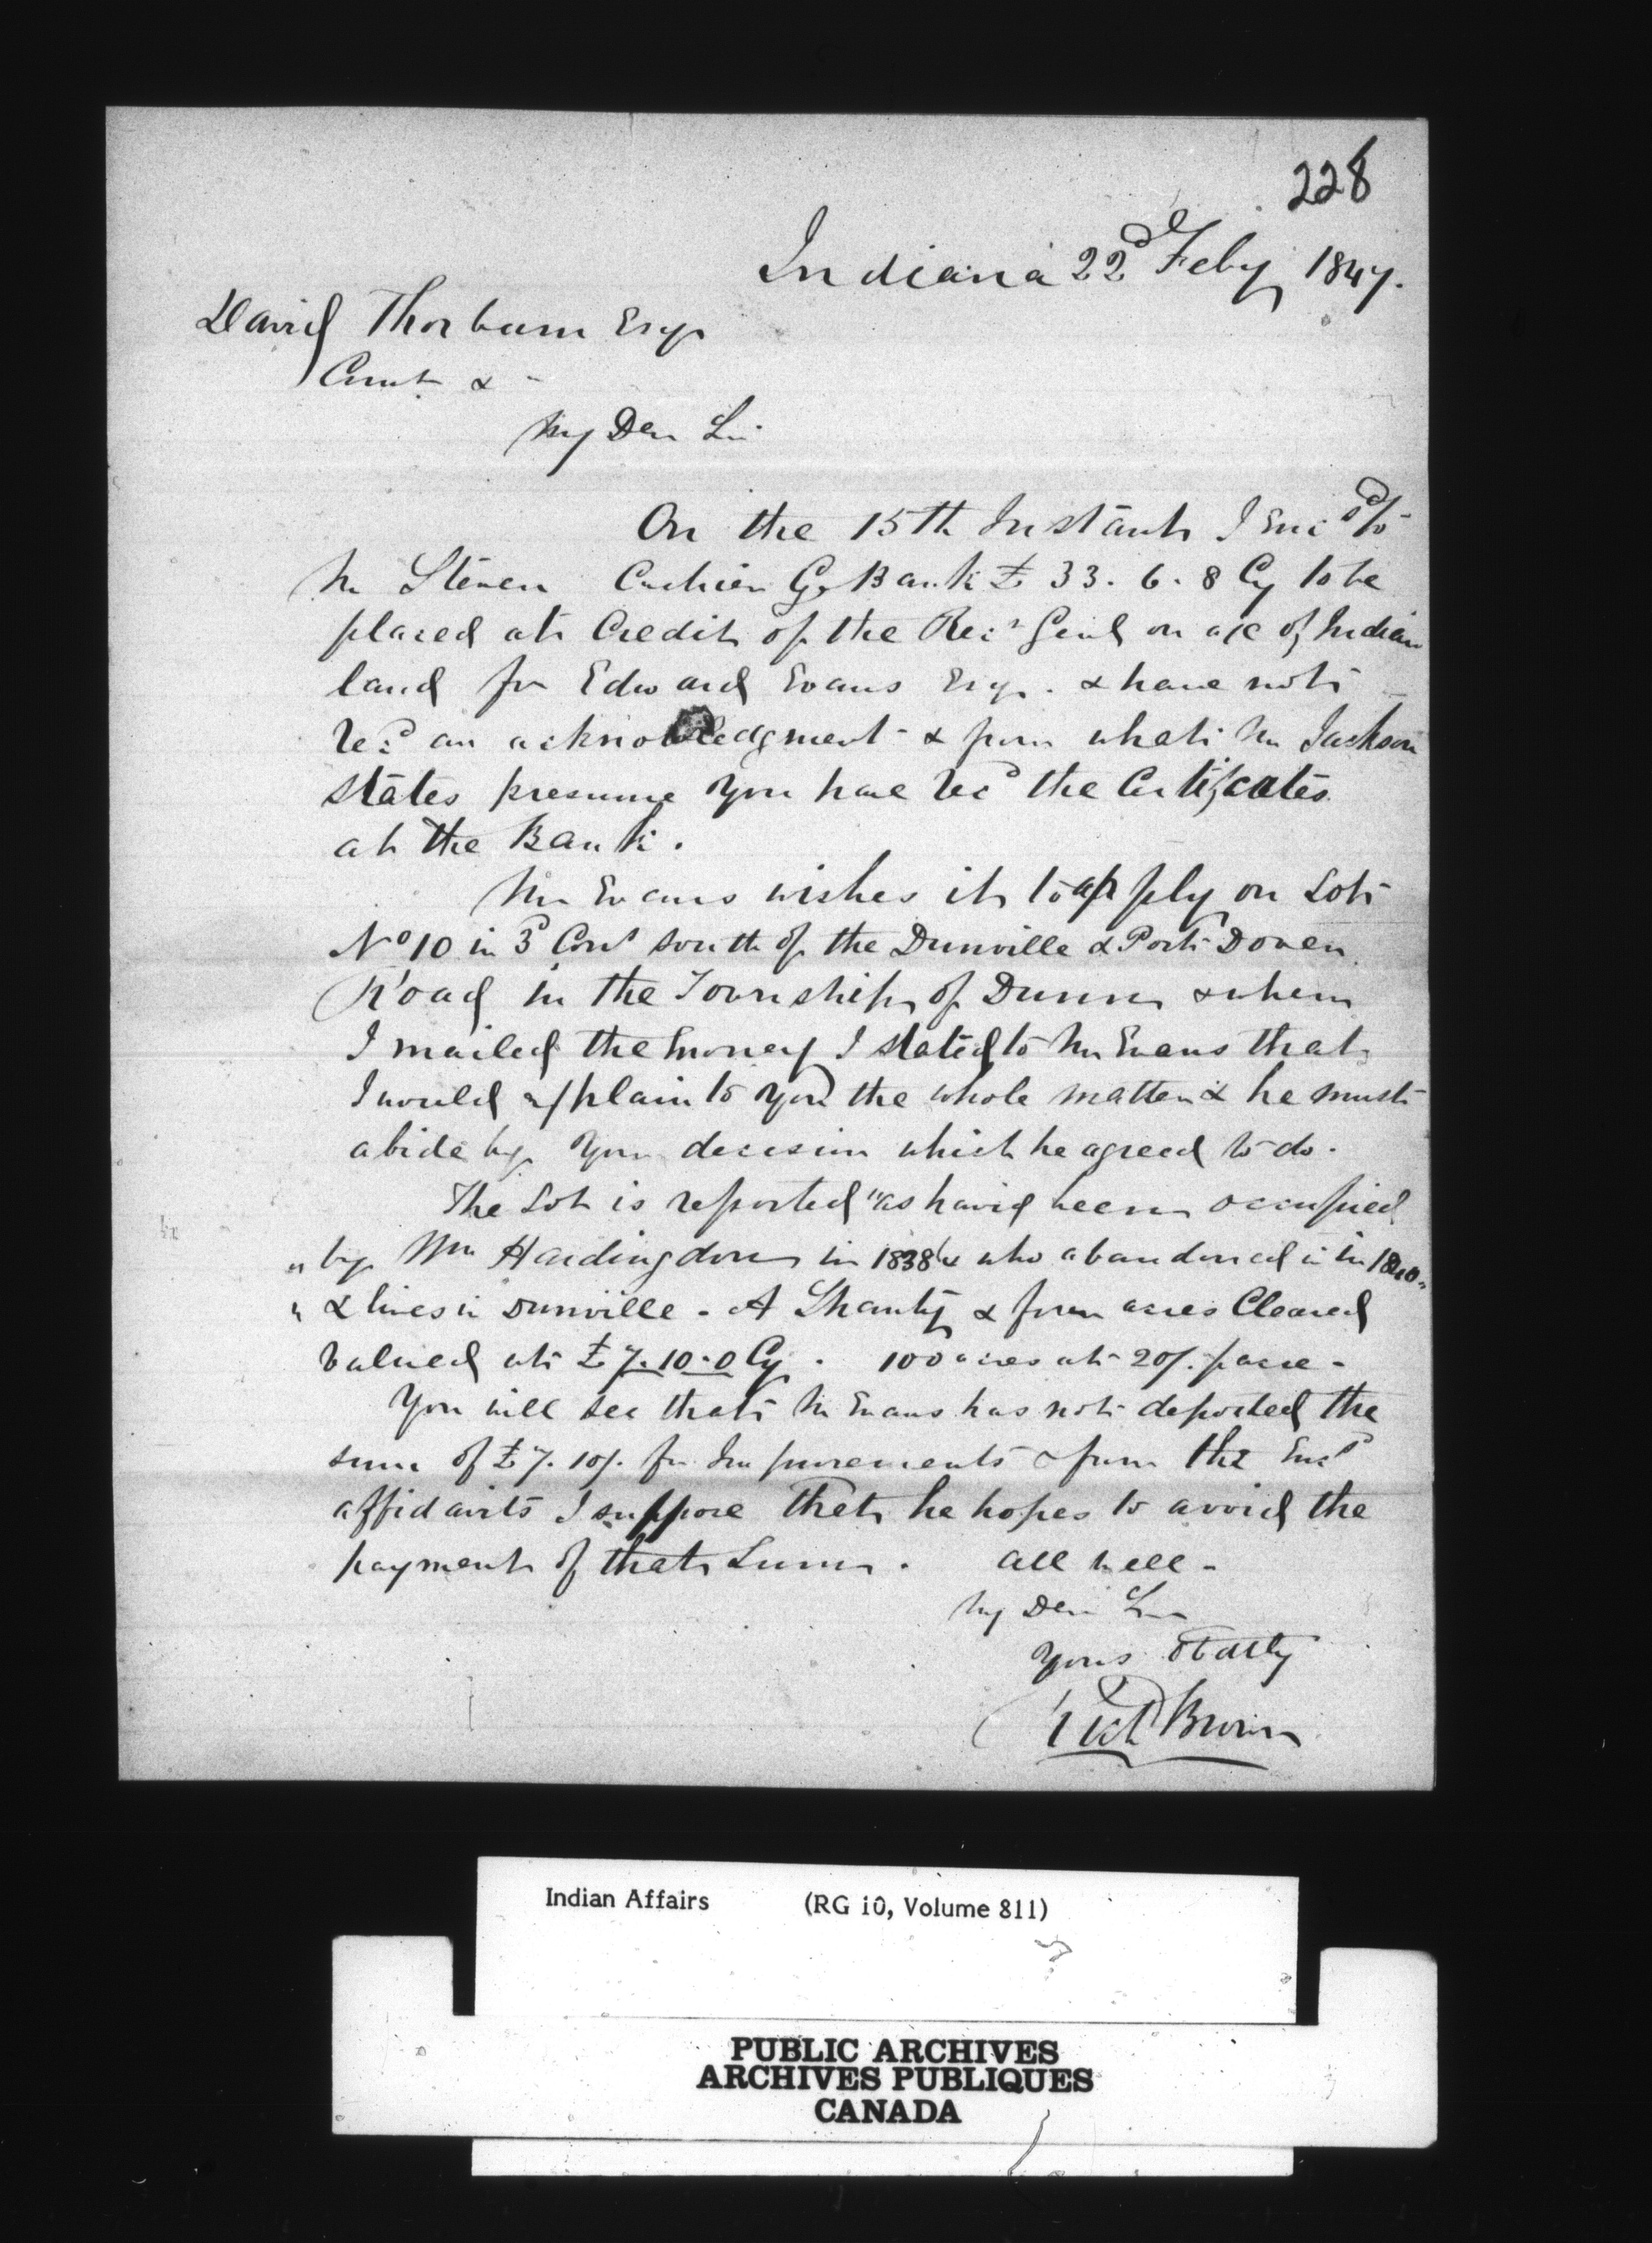 228
Indiana 22d Feby 1847.
David Thorburn Esqr
Comr &
My Dear Sir
On the 15th Instant I Encd to
Mr Steven Cashier G. Bank £ 33. 6. 8 Cy to be
placed at Credit of the Recr Genl on a/c of Indian
land for Edward Evans Esqr. & have not
recd an acknowledgment & from what Mr Jackson
states presume you have recd the Certificates
at the Bank.
Mr Evans wishes it to apply on Lot
No 10 in 3d Con south of the Dunville & Port Dover
Road in the Township of Dunn & when
I mailed the money I stated to Mr Evans that
I would explain to you the whole matter & he must
abide by your decision which he agreed to do.
The Lot is reported "as havig been occupied
" by Wm Hardingdon in 1838 who abandoned it in 1840
" & lives in Dunville - A Shanty & four acres Cleared
valued at £7.10.0 Cy. 100 acres at 20/. p acre -
You will see that Mr Evans has not deposited the
sum of £7.10/. for Improvements & from the Encd
affidavits I suppose that he hopes to avoid the
payment of that Sum. all well -
My Dear Sir
Yours
Brown
Indian Affairs (RG 10, Volume 811)
PUBLIC ARCHIVES
ARCHIVES PUBLIQUES
CANADA